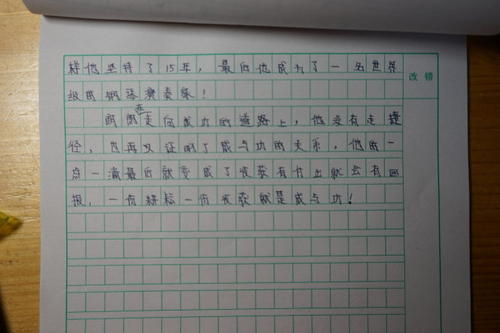 样他坚持了15年，最后他成为了一名世界
改错
级的钢琴演奏家！
在走向成功的道路上，他没有走捷
径，也再又证明了成与功的关系，他的一
点一滴最后就变成了收获有付出就会有回
报，一份耕耘一份收获就是成与功！